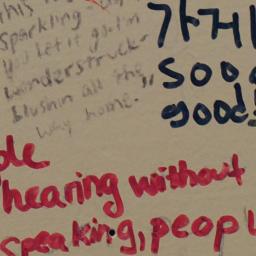 this
Sparkling
You let it go. I'm
wonderstruck
blushin all the
way home.
SOOO
good!
ple
hearing without
speaking, peopl